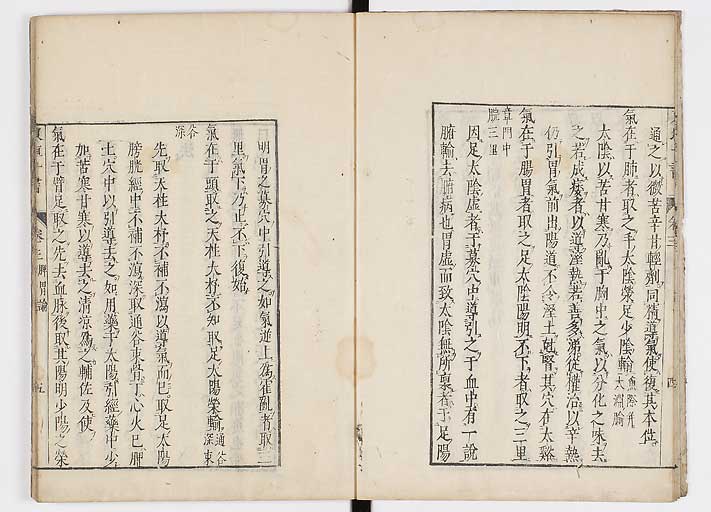 通之以微苦辛甘輕劑同精導氣使復其本位
氣在于肺者取之手太陰滎足少陰輸
魚際并
太淵輸
太陰以苦甘寒乃亂于胸中之氣以分化之味去
之若成痿者以導溼熱若善多涕從權治以辛熱
仍引胃氣前出陽道不令溼土尅腎其穴有太谿
氣在于腸胃者取之足太陰陽明不下者取之三里
章門中
脘三里
因足太陰虛者于募穴中導引之于血中有一說
腑輸去腑病也胃虛而致太陰無所稟者于足陽
明胃之募穴中引導之如氣逆上為霍亂者取三
里氣下乃止不下復始
氣在于頭取之天柱大杼不知取足太陽滎輸
通谷
深束
谷
深
先取天柱大杼不補不瀉以導氣而已取足太陽
膀胱經中不補不瀉深取通谷束骨丁心火己脾
土穴中以引導去之如用藥于太陽引經藥中少
加苦寒甘寒以導去之清涼為之輔佐及使
氣在于臂足取之先去血脉後取其陽明少陽之滎
卷三 脾胃論
五